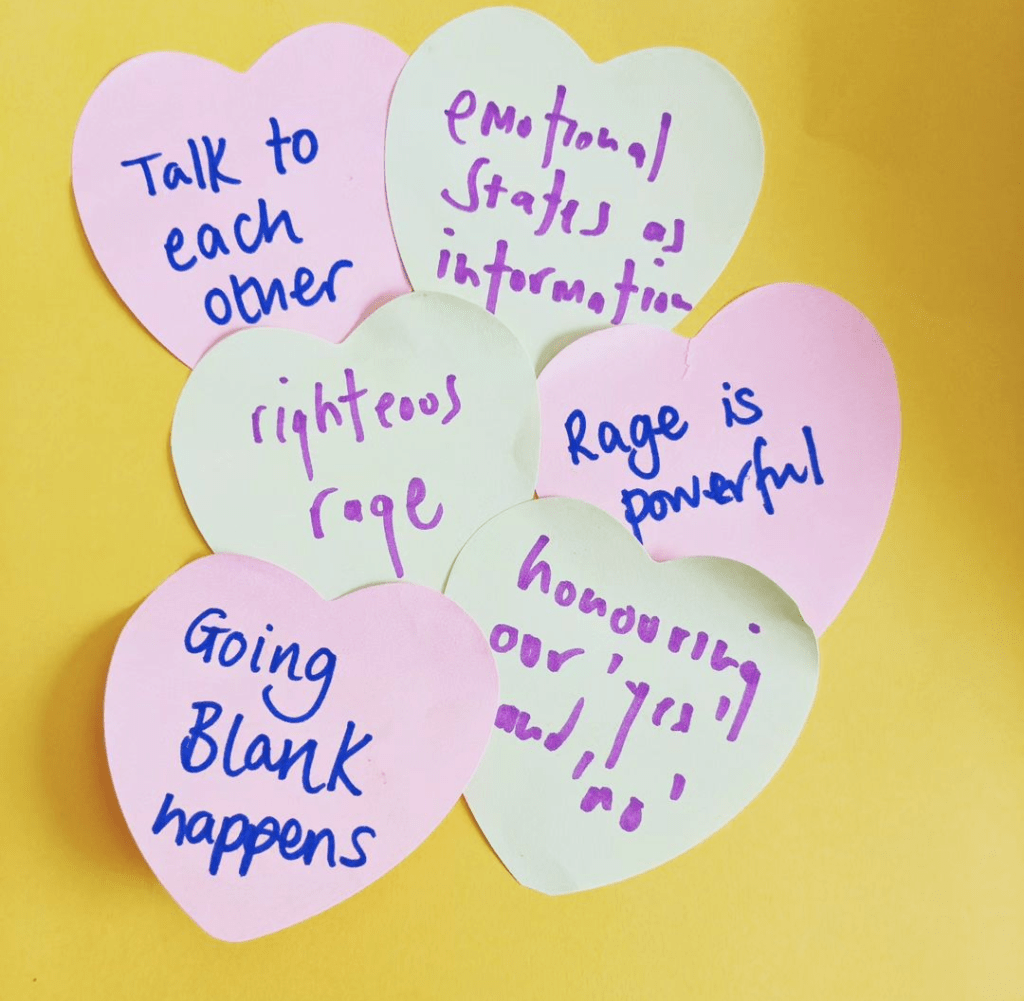 Talk to
each
other
emotional
states as
information
righteous
rage
Rage is
powerful
Going
Blank
happens
honouring
our 'yes'
and 'no'